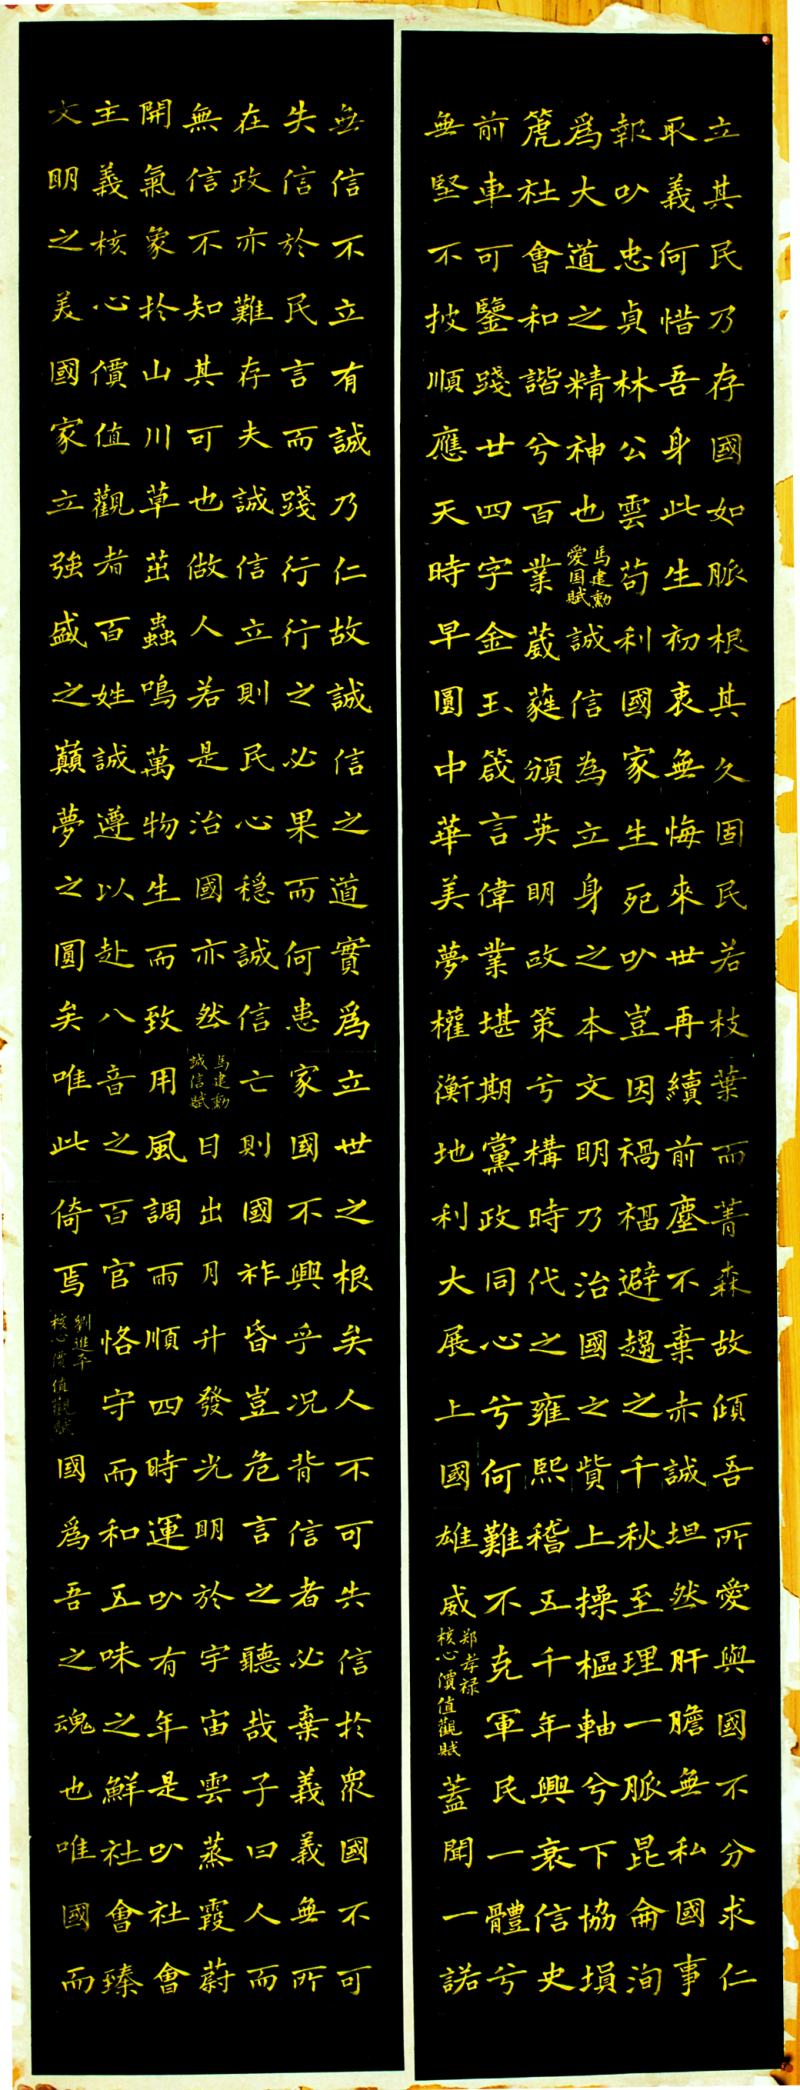 立其民乃存國如脈根其久固民若枝葉而菁森故傾吾所愛與國不分求仁
取義何惜吾身此生初衷無悔來世再續前塵不棄赤誠坦然肝膽無私國事
報㕥忠貞林公雲苟利國家生死㕥豈因禍福避趨之千秋至理一脈昆侖洵
爲大道之精神也馬建勳愛国賦誠信為立身之本文明乃治國之貲上操樞軸兮下協塤
箎社會和諧兮百業葳蕤頒英明政策兮構時代之雍熙稽五千年興衰信史
前車可鑒踐廿四字金玉箴言偉業堪期黨政同心兮何難不克軍民一體兮
無堅不披順應天時早圓中華美夢權衡地利大展上國雄威郑孝禄核心價值觀賦蓋聞一諾
無信不立有誠乃仁故誠信之道實爲立世之根矣人不可失信於眾國不可
失信於民言而踐行行之必果而何患家國不興乎况背信者必棄義義無所
在政亦難存夫誠信立則民心穩誠信亡則國祚昏豈危言之聽哉子曰人而
無信不知其可也做人若是治國亦然馬建勳誠信賦日出月升發光明於宇宙雲蒸霞蔚
開氣象於山川草茁蟲鳴萬物生而致用風調雨順四時運㕥有年是㕥社會
主義核心價值觀者百姓誠遵以赴八音之百官恪守而和五味之鮮社會臻
文明之美國家立強盛之巔夢之圓矣唯此倚焉劉進核心價值觀賦國爲吾之魂也唯國而